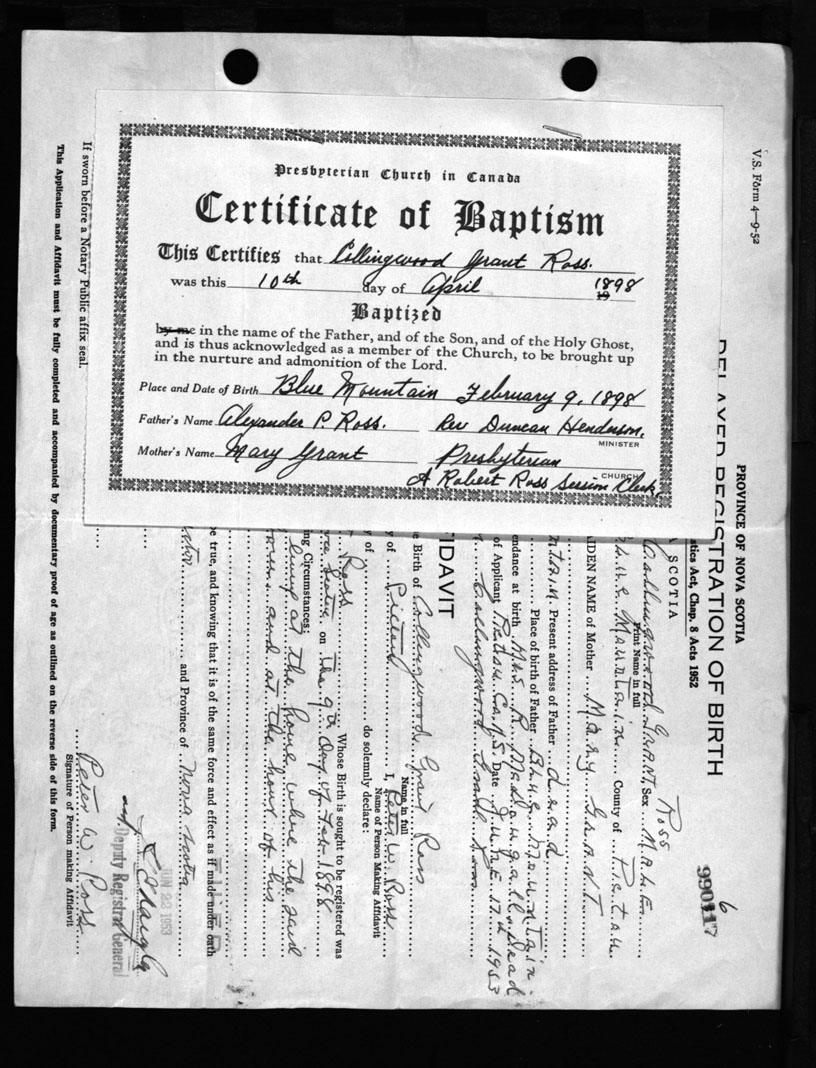 Presbyterian Church in Canada
Certificate of Baptism
This Certifies that Collingwood Grant Ross.
was this 10th day of April 1898
19
Baptized
by me in the name of the Father, and of the Son, and of the Holy Ghost,
and is thus acknowledged as a member of the Church, to be brought up
in the nurture and admonition of the Lord.
Place and Date of Birth Blue Mountain February 9, 1898
Father's Name Alexander P. Ross. Rev Duncan Henderson,
MINISTER
Mother's Name Mary Grant Presbyterian
CHURCH
A Robert Ross Session Clerk,
V.S. Form 4—9-52
PROVINCE OF NOVA SCOTIA
DELAYED REGISTRATION OF BIRTH
atics Act, Chap. 8 Acts 1952
A SCOTIA
990117
6
Ross
Collingwood GRANT, Sex MALE
Print Name in full
Blue Mountain County of Pictou
AIDEN NAME of Mother MARY GRANT
ntain Present address of Father dead
Place of birth of Father Blue Mountain
endance at birth Mrs R. MacDougall Dead
of Applicant Pictou Co. N.S. Date June 17th 1953
Collingwood Ross
IDAVIT
e Birth of Collingwood Grant Ross
Name in full
y of Pictou I, Peter W. Ross
Name of Person Making Affidavit
y of do solemnly declare:
Ross Whose Birth is sought to be registered was
on the 9th Day of Feb. 1898
ing Circumstances:
living at the home where the said
born and at the hour of his
be true, and knowing that it is of the same force and effect as if made under oath
and Province of Nova Scotia
JUN 22 1953
Deputy Registrar General
Peter W. Ross
Signature of Person making Affidavit
If sworn before a Notary Public affix seal.
This Application and Affidavit must be fully completed and accompanied by documentary proof of age as outlined on the reverse side of this form.